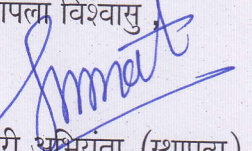 पला विश्वासु
री अभियंता (स्थापत्य)